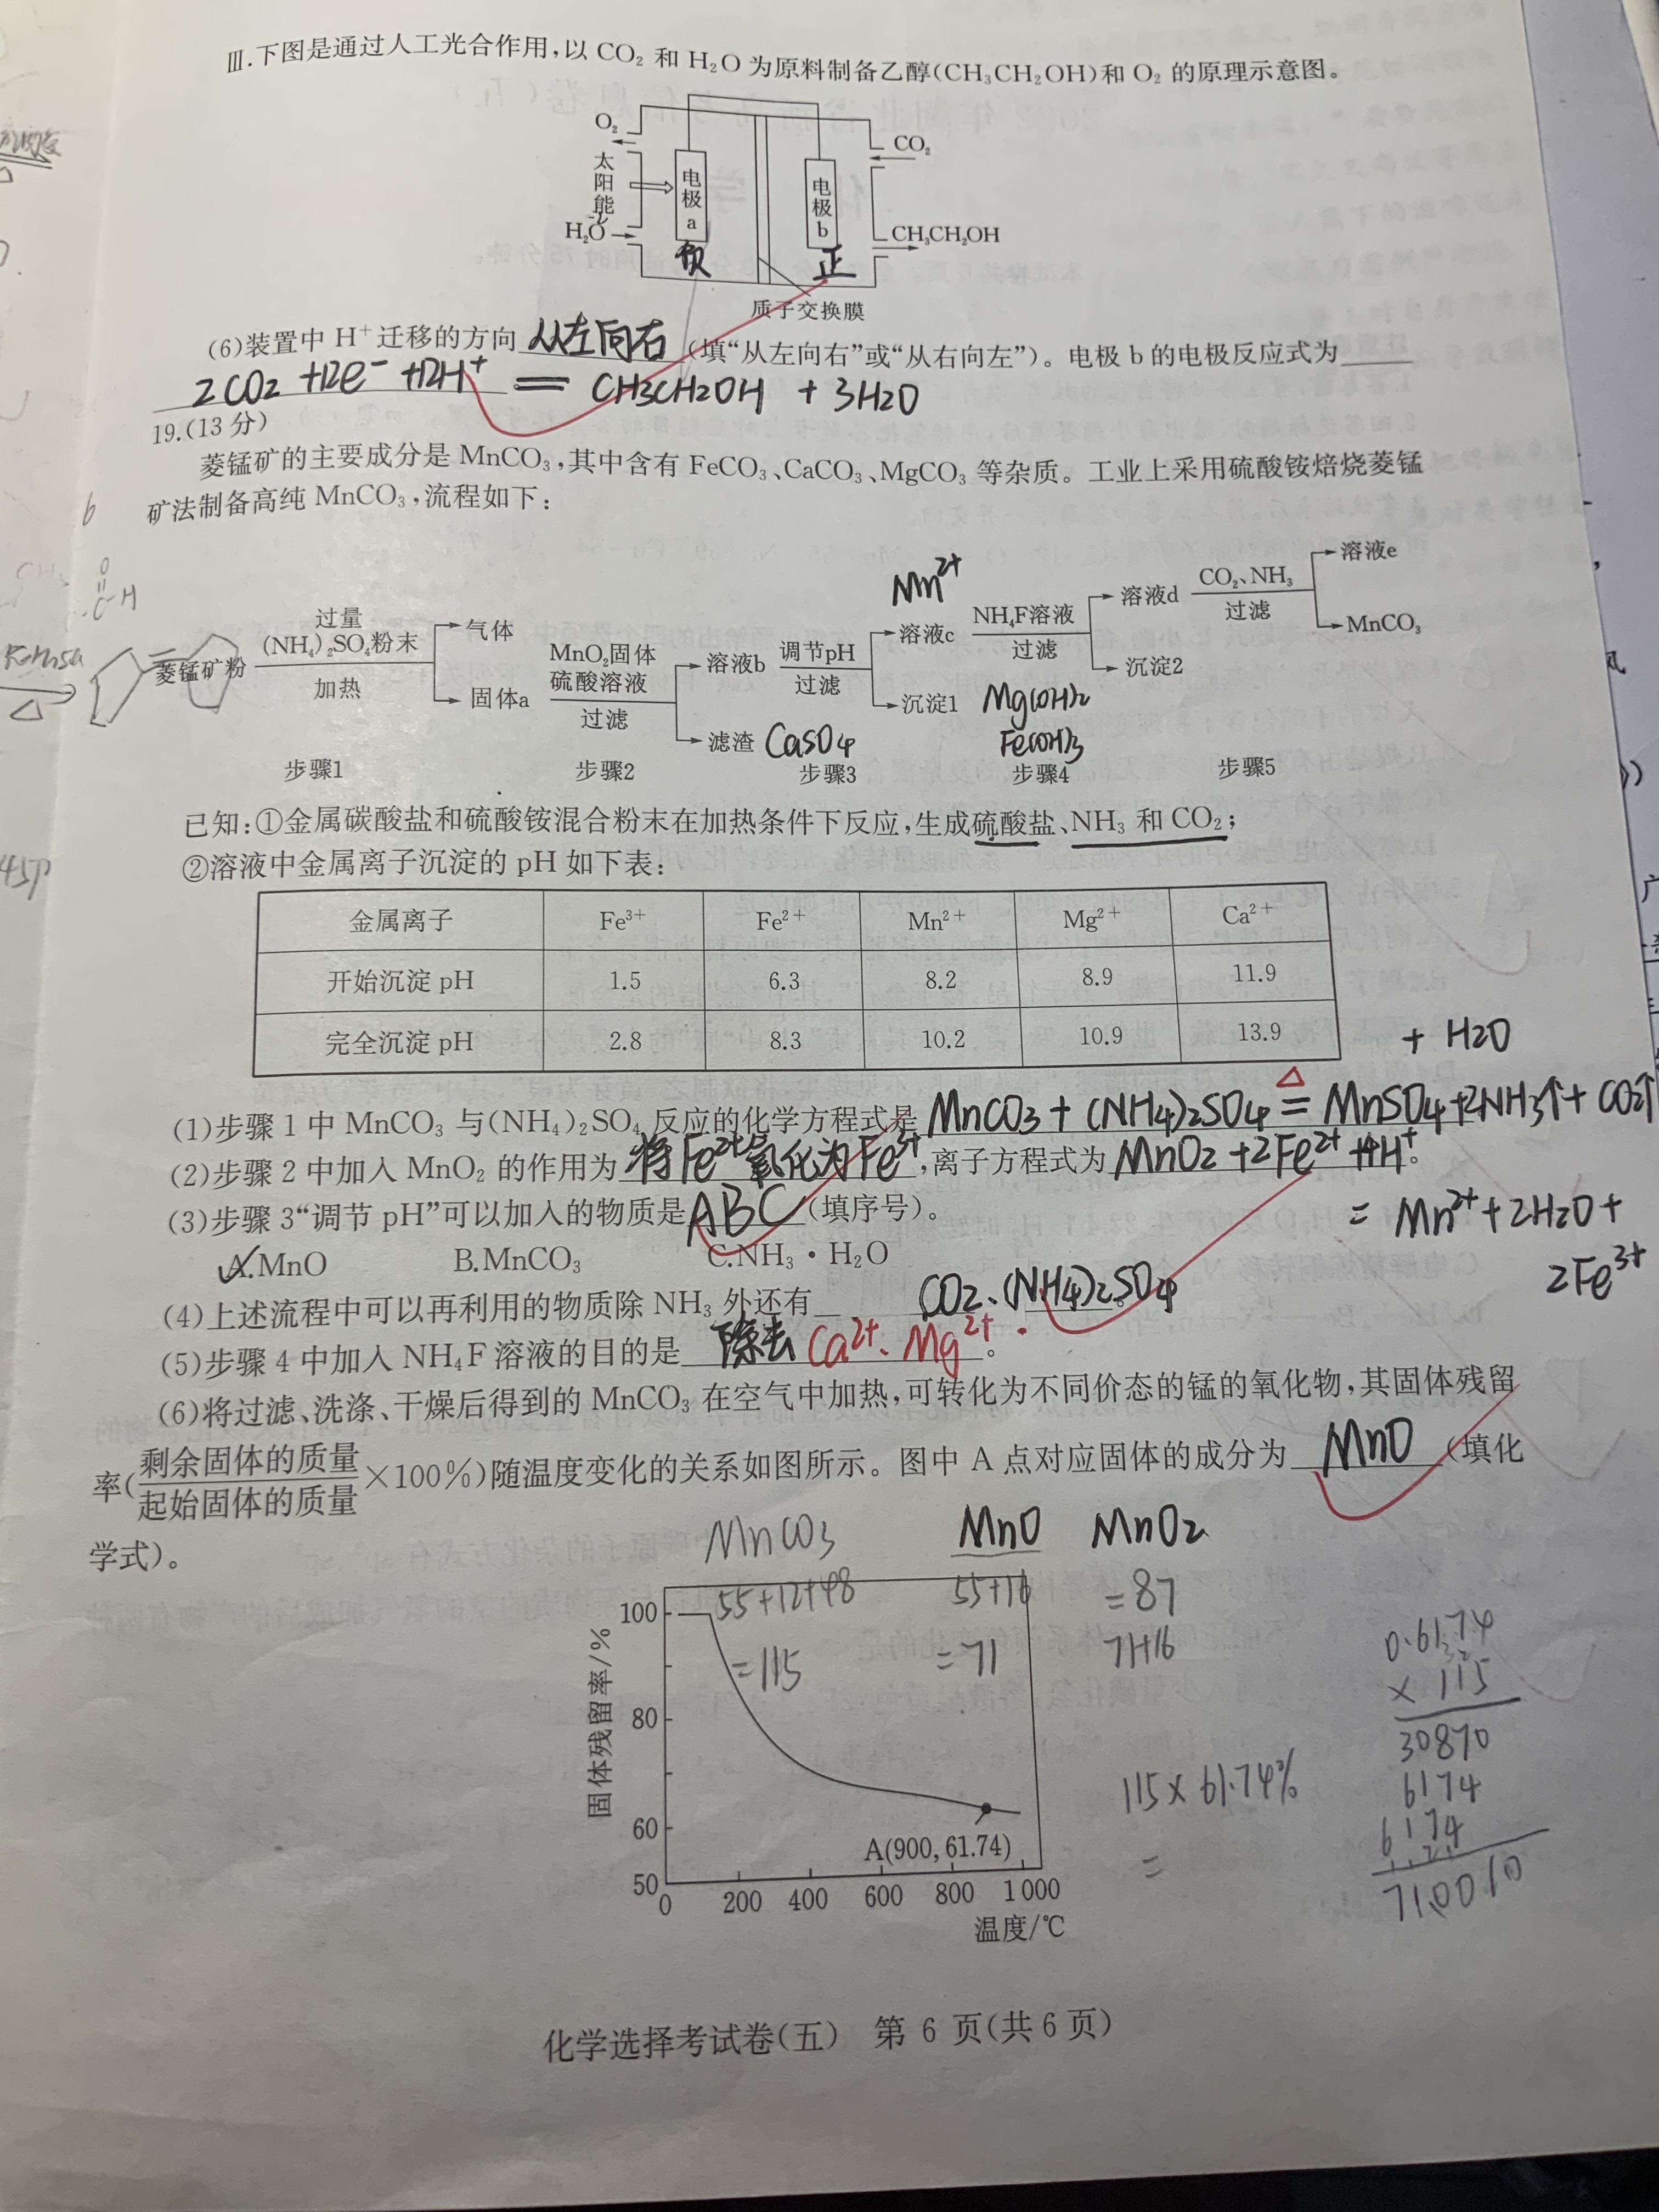 Ⅲ.下图是通过人工光合作用,以 CO₂ 和 H₂O 为原料制备乙醇(CH₃CH₂OH)和 O₂ 的原理示意图。
O₂
太阳能
H₂O
电极a
电极b
CO₂
CH₃CH₂OH
负
正
质子交换膜
(6)装置中 H⁺ 迁移的方向 从左向右 (填“从左向右”或“从右向左”)。电极 b 的电极反应式为
2CO₂ +12e⁻ +12H⁺ = CH3CH2OH + 3H2O
19.(13 分)
菱锰矿的主要成分是 MnCO₃,其中含有 FeCO₃、CaCO₃、MgCO₃ 等杂质。工业上采用硫酸铵焙烧菱锰
矿法制备高纯 MnCO₃,流程如下:
菱锰矿粉
过量
(NH₄)₂SO₄粉末
加热
气体
固体a
MnO₂固体
硫酸溶液
过滤
溶液b
滤渣 CaSO4
调节pH
过滤
Mn²⁺
溶液c
沉淀1 Mg(OH)2
Fe(OH)3
NH₄F溶液
过滤
溶液d
沉淀2
CO₂、NH₃
过滤
溶液e
MnCO₃
步骤1 步骤2 步骤3 步骤4 步骤5
已知:①金属碳酸盐和硫酸铵混合粉末在加热条件下反应,生成硫酸盐、NH₃ 和 CO₂;
②溶液中金属离子沉淀的 pH 如下表:
金属离子 Fe³⁺ Fe²⁺ Mn²⁺ Mg²⁺ Ca²⁺
开始沉淀 pH 1.5 6.3 8.2 8.9 11.9
完全沉淀 pH 2.8 8.3 10.2 10.9 13.9
+ H2O
(1)步骤 1 中 MnCO₃ 与(NH₄)₂SO₄ 反应的化学方程式是 MnCO3 + (NH4)2SO4 △= MnSO4+2NH3↑+ CO2↑
(2)步骤 2 中加入 MnO₂ 的作用为 将Fe²⁺氧化为Fe³⁺ ,离子方程式为 MnO2 +2Fe²⁺ +4H⁺ 。
= Mn²⁺+2H2O+
2Fe³⁺
(3)步骤 3“调节 pH”可以加入的物质是 ABC (填序号)。
A.MnO B.MnCO₃ C.NH₃·H₂O
(4)上述流程中可以再利用的物质除 NH₃ 外还有 CO2、(NH4)2SO4 。
(5)步骤 4 中加入 NH₄F 溶液的目的是 除去 Ca²⁺、Mg²⁺ 。
(6)将过滤、洗涤、干燥后得到的 MnCO₃ 在空气中加热,可转化为不同价态的锰的氧化物,其固体残留
率(剩余固体的质量/起始固体的质量×100%)随温度变化的关系如图所示。图中 A 点对应固体的成分为 MnO (填化
学式)。
MnCO3 MnO MnO2
55+12+48 55+16 =87
=115 =71 71+16
固体残留率/%
100
80
60
50
0 200 400 600 800 1000
温度/℃
A(900,61.74)
115×61.74%
=
0.6174
× 115
30870
6174
6174
710010
化学选择考试卷(五) 第 6 页(共 6 页)